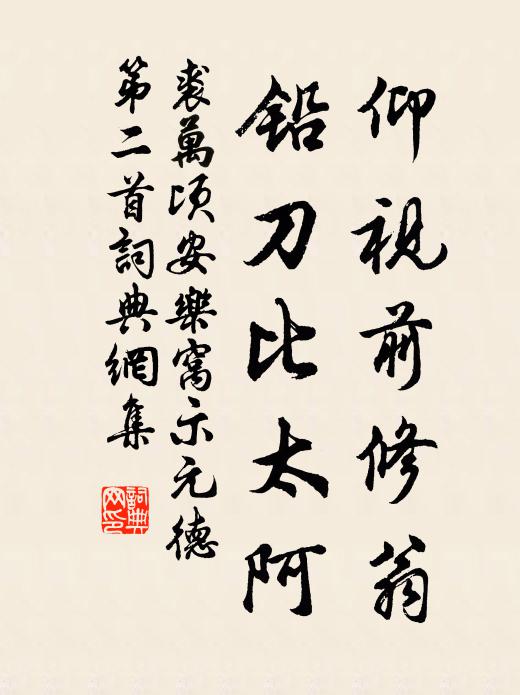 仰視前修翁
鉛刀比太阿
裘萬頃安樂窩示元德
第二首詞典網集
詞典
网印